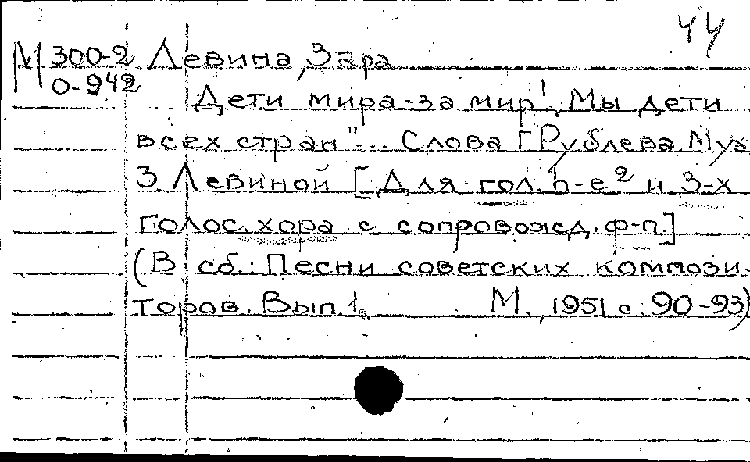 44
М 300-2 Левина, Зара
0-942
Дети мира-за мир! "Мы дети
всех стран"... Слова Г Рублева. Муз
З. Левиной [Для гол. h-e² и 3-х
голос. хора с сопровожд. ф-п.]
(В сб.: Песни советских компози-
торов. Вып. 1. М., 1951 с. 90-93)